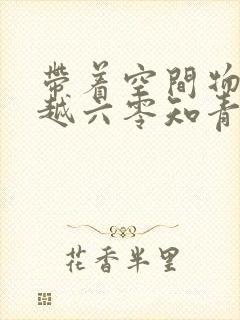 带着空間物
越六零知青
花香半里